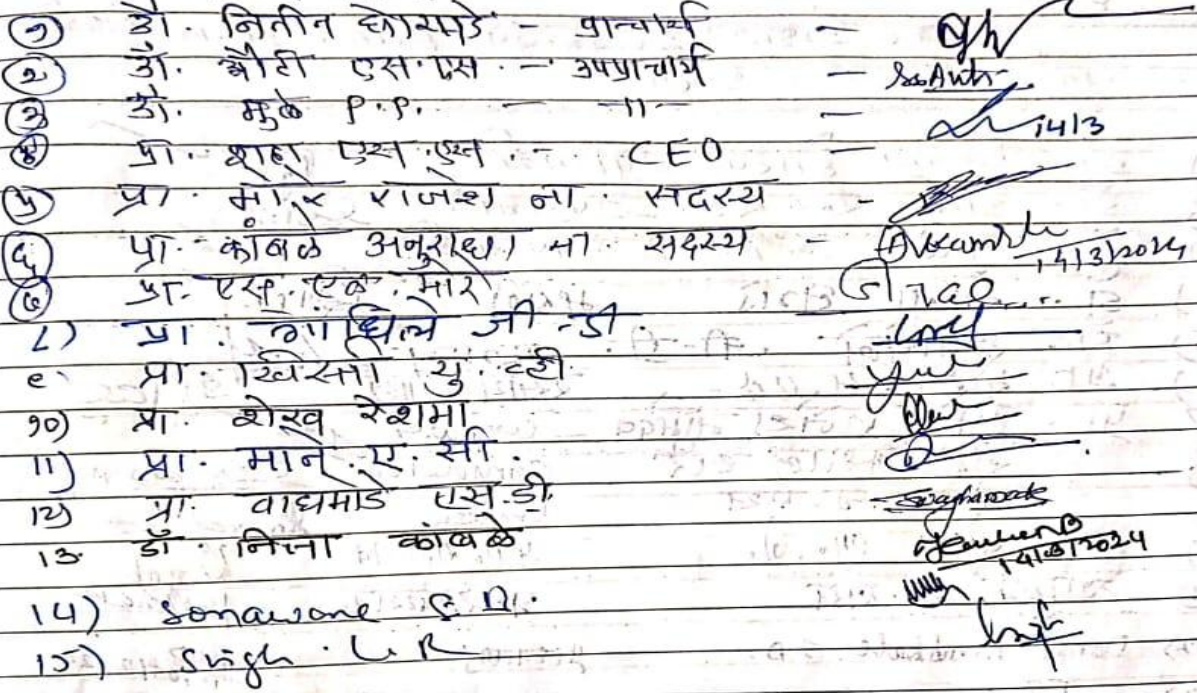 १) डॉ. नितीन घोरपडे - प्राचार्य -
२) डॉ. औटी एस.एस. - उपप्राचार्य - SsAuti
३) डॉ. मुळे P.P. - -11- - 14/3
४) प्रा. शहा एस.एन. - CEO -
५) प्रा. मोरे राजेश ना. सदस्य -
६) प्रा. कांबळे अनुराधा ना. सदस्य - AKamble 14/3/2024
७) प्रा. एस. एल. मोरे
८) प्रा. गांधिले जी.डी.
९. प्रा. खिस्ती यु. व्ही
१०) प्रा. शेख रेशमा
11) प्रा. माने ए. सी.
12) प्रा. वाघमोडे एस.डी. Swaghamode
13. डॉ. निता कांबळे 14/3/2024
14) Sonawane
15) Singh. L R Singh